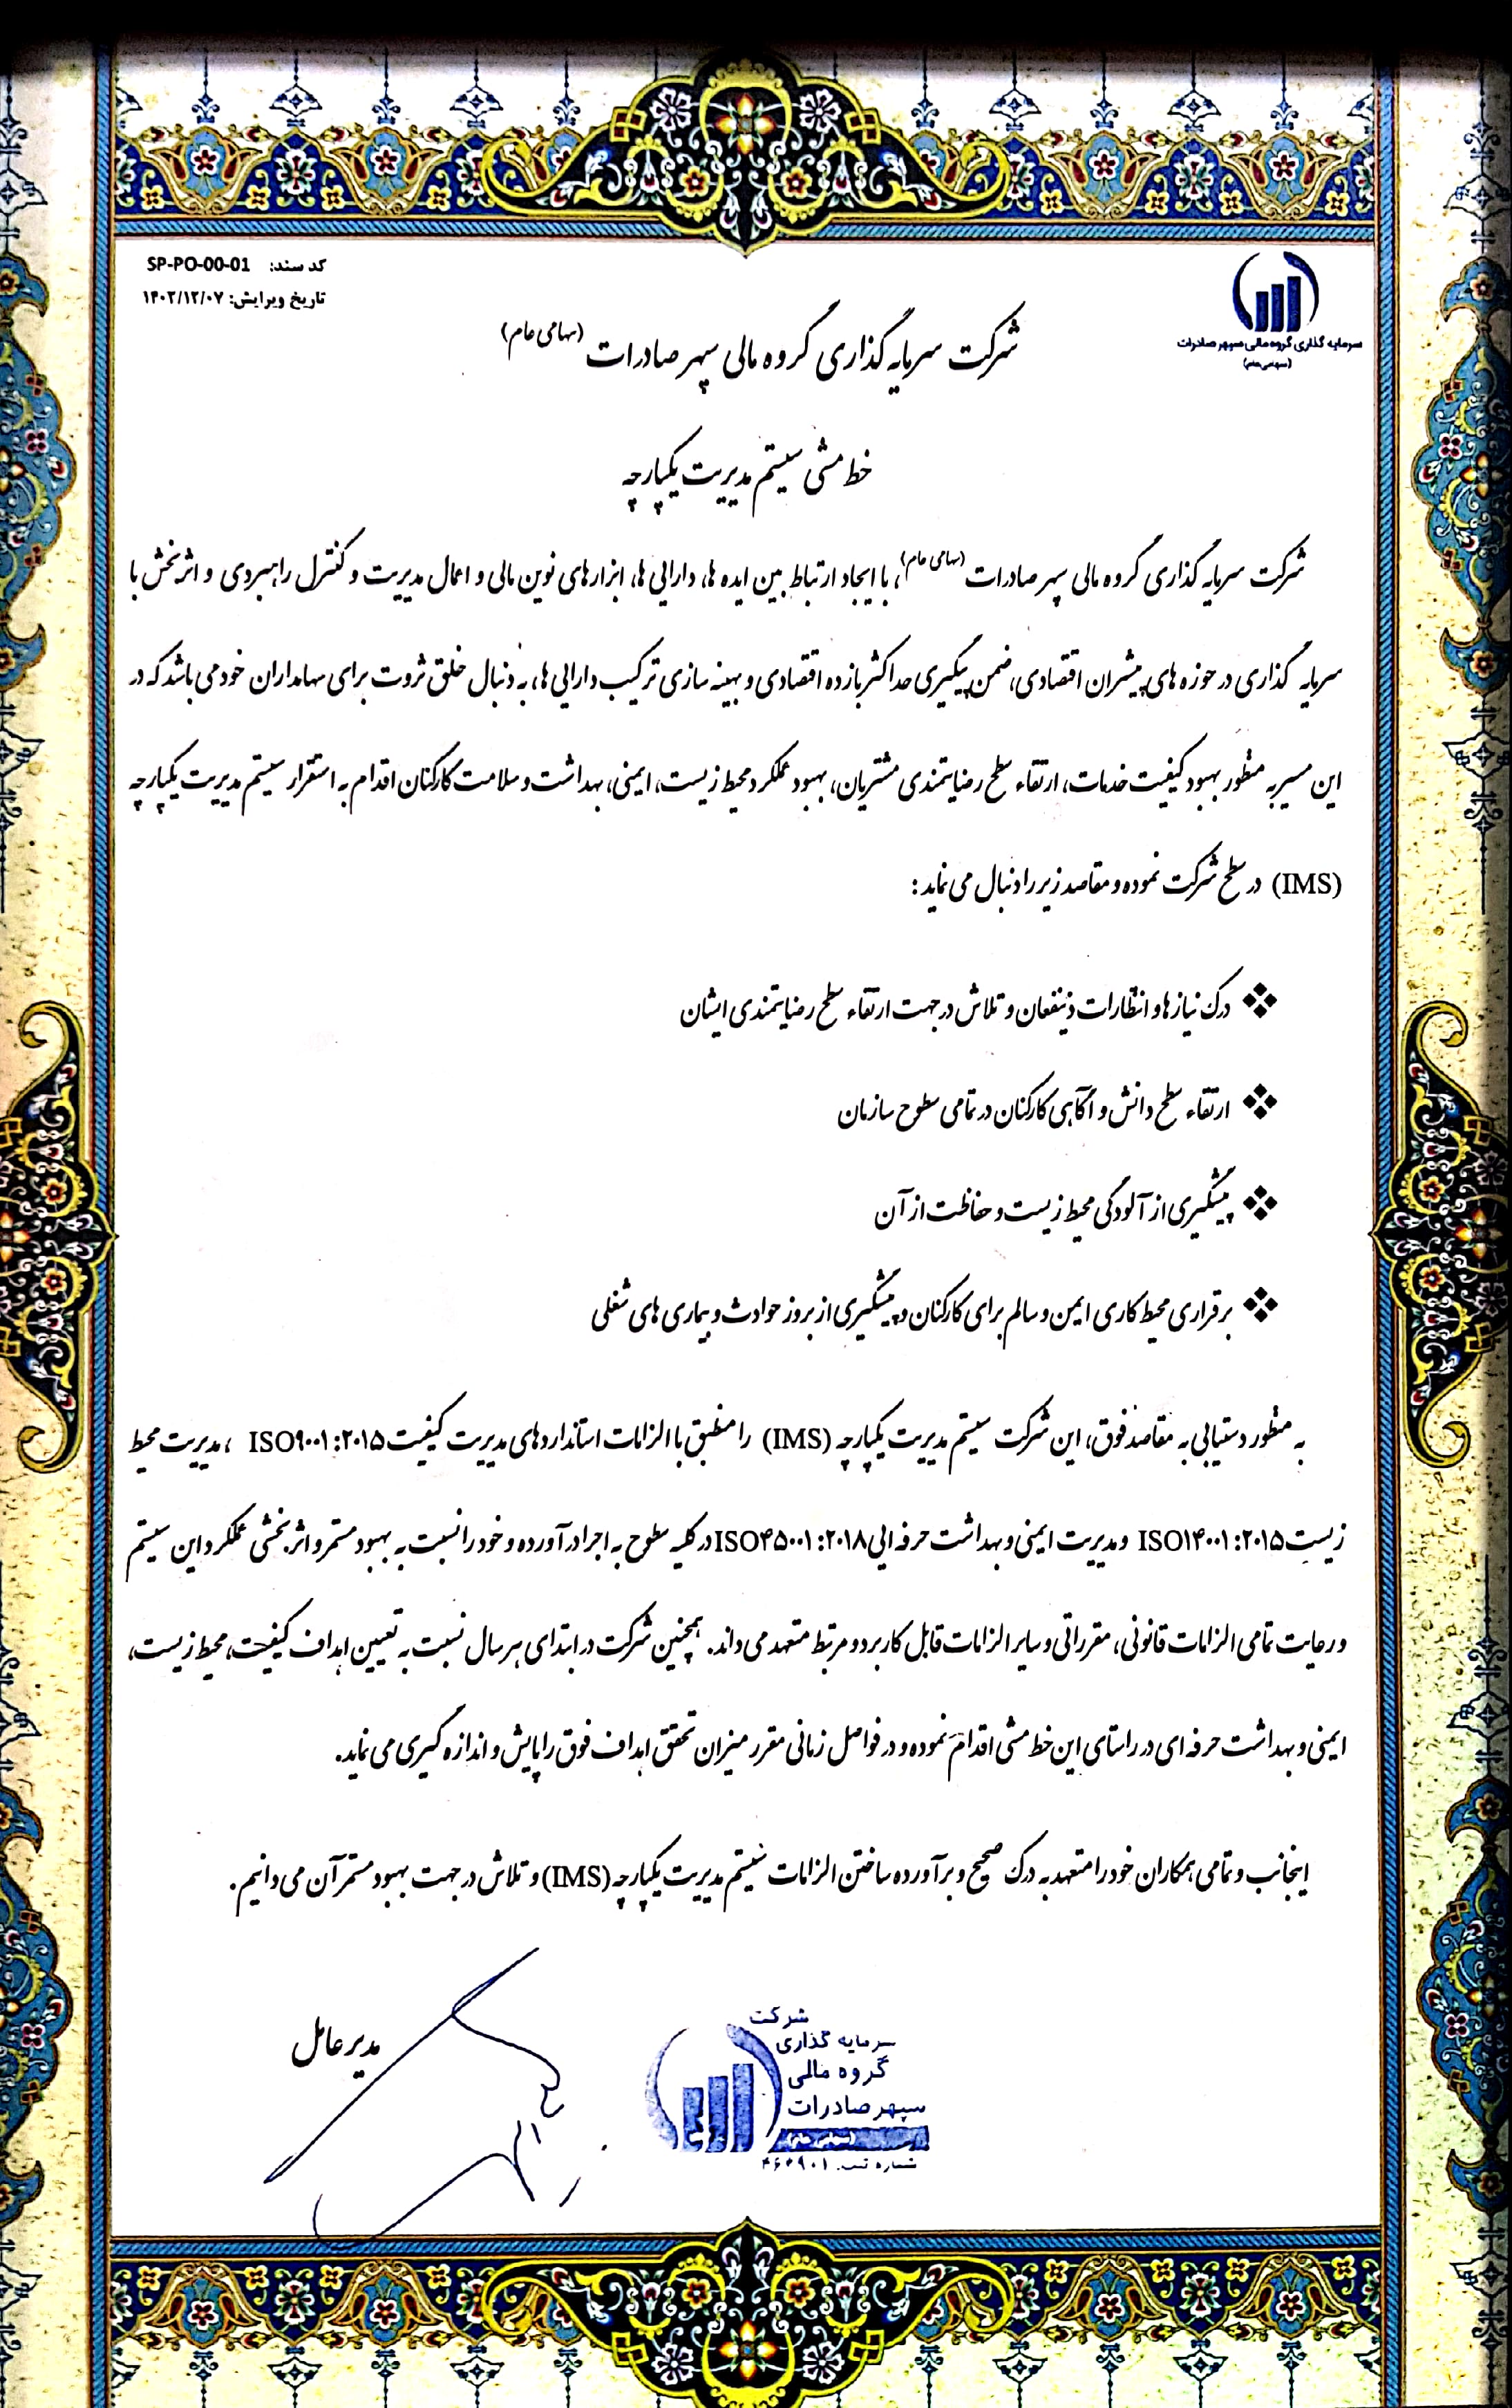 کد سند: SP-PO-00-01
تاریخ ویرایش: ۱۴۰۲/۱۲/۰۷
سرمایه گذاری گروه مالی سپهر صادرات
(سهامی عام)
شرکت سرمایه گذاری گروه مالی سپهر صادرات (سهامی عام)
خط مشی سیستم مدیریت یکپارچه
شرکت سرمایه گذاری گروه مالی سپهر صادرات (سهامی عام)، با ایجاد ارتباط بین ایده ها، دارایی ها، ابزارهای نوین مالی و اعمال مدیریت و کنترل راهبردی و اثربخش با
سرمایه گذاری در حوزه های پیشران اقتصادی، ضمن پیگیری حداکثر بازده اقتصادی و بهینه سازی ترکیب دارایی ها، به دنبال خلق ثروت برای سهامداران خود می باشد که در
این مسیر به منظور بهبود کیفیت خدمات، ارتقاء سطح رضایتمندی مشتریان، بهبود عملکرد محیط زیست، ایمنی، بهداشت و سلامت کارکنان اقدام به استقرار سیستم مدیریت یکپارچه
(IMS) در سطح شرکت نموده و مقاصد زیر را دنبال می نماید :
❖ درک نیازها و انتظارات ذینفعان و تلاش در جهت ارتقاء سطح رضایتمندی ایشان
❖ ارتقاء سطح دانش و آگاهی کارکنان در تمامی سطوح سازمان
❖ پیشگیری از آلودگی محیط زیست و حفاظت از آن
❖ برقراری محیط کاری ایمن و سالم برای کارکنان و پیشگیری از بروز حوادث و بیماری های شغلی
به منظور دستیابی به مقاصد فوق، این شرکت سیستم مدیریت یکپارچه (IMS) را منطبق با الزامات استانداردهای مدیریت کیفیت ISO۹۰۰۱:۲۰۱۵ ، مدیریت محیط
زیست ISO۱۴۰۰۱:۲۰۱۵ و مدیریت ایمنی و بهداشت حرفه ایی ISO۴۵۰۰۱:۲۰۱۸ در کلیه سطوح به اجرا در آورده و خود را نسبت به بهبود مستمر و اثربخشی عملکرد این سیستم
و رعایت تمامی الزامات قانونی، مقرراتی و سایر الزامات قابل کاربرد و مرتبط متعهد می داند. همچنین شرکت در ابتدای هر سال نسبت به تعیین اهداف کیفیت، محیط زیست،
ایمنی و بهداشت حرفه ای در راستای این خط مشی اقدام نموده و در فواصل زمانی مقرر میزان تحقق اهداف فوق را پایش و اندازه گیری می نماید.
اینجانب و تمامی همکاران خود را متعهد به درک صحیح و برآورده ساختن الزامات سیستم مدیریت یکپارچه (IMS) و تلاش در جهت بهبود مستمر آن می دانیم.
مدیر عامل
شرکت
سرمایه گذاری
گروه مالی
سپهر صادرات
(سهامی عام)
شماره ثبت